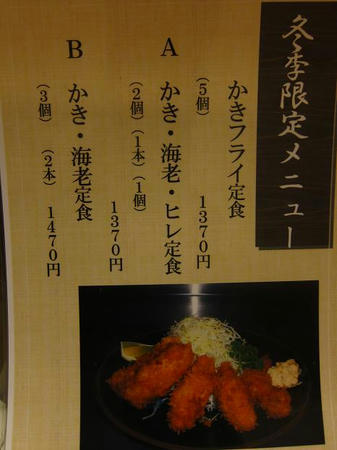 冬季限定メニュー
かきフライ定食
（5個）
1370円
A かき・海老・ヒレ定食
（2個）（1本）（1個）
1370円
B かき・海老定食
（3個）（2本）
1470円